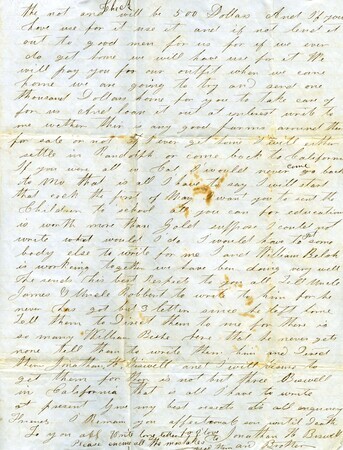 Check
the not and will be 500 Dollars And If you
have use for it use it and if not lend it
out to good men for us for if we ever
do get home we will have use for it We
will pay you for our outfit when we come
home we are going to try and send one
thousand Dollars home for you to take care of
for us And loan it out at interest write to
me wether ther is any good farms around ther
for sale or not If I ever get home I will either
settle in Randolph or come back to California
If you were all in Cal I would never come back
to MO that is all I have to say I will start
that rock the first of May I want you to send the
Children to school all you can for education
is worth more than Gold suppose I could not
write what would I do I would have to get some
body else to write for me I and William Belsh
is working together we have ben doing very well
He sends his best Respect to you all Tell Uncle
James & Uncle Robbert to write to him for he
never has got but 3 letters since he left home
tell them to Direct them to me for there is
so many William Belshe here that he never gets
none tell them to write them him and Direct
them Jonathan H Buswell and I will be sure to
get them for they is not but three Buswell
in California that is all I have to write
at present Give my best respects to all enquiring
Friends I Remain you affectionate son until Death
To you all Write long letters Jonathan H Buswell
Please excuse all the mistakes and Brother